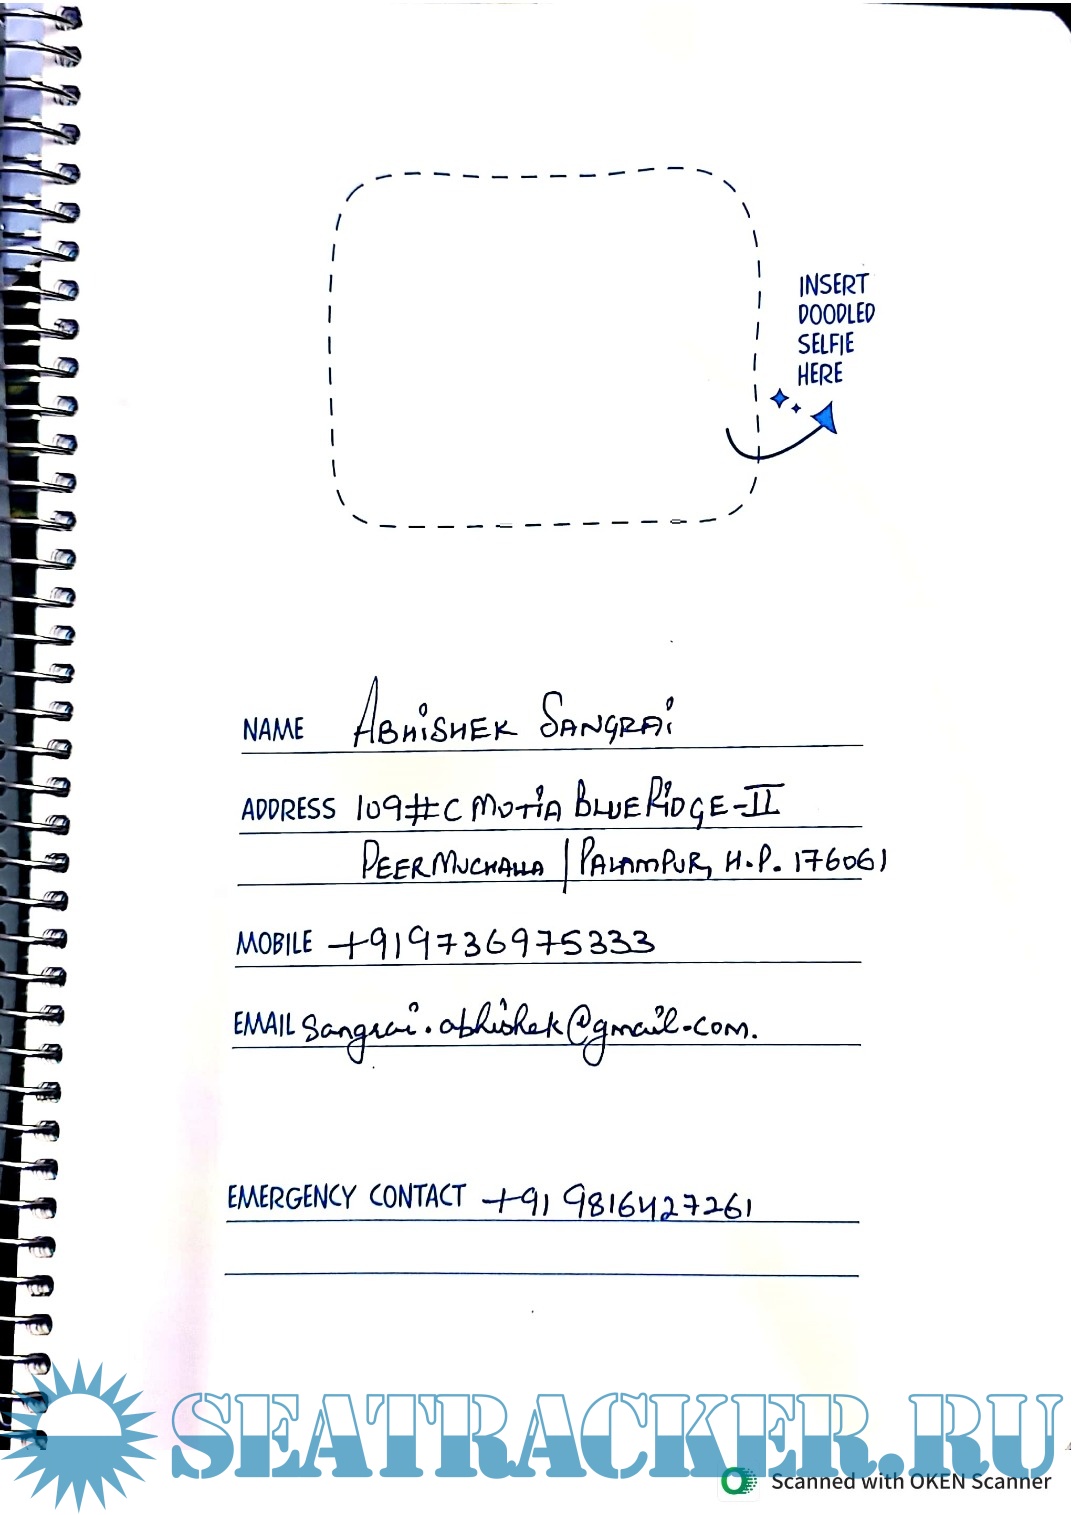 INSERT
DOODLED
SELFIE
HERE
NAME ABHISHEK SANGRAI
ADDRESS 109#C MOTIA BLUE RIDGE-II
PEERMUCHALLA | PALAMPUR, H.P. 176061
MOBILE +919736975333
EMAIL Sangrai.abhishek@gmail.com.
EMERGENCY CONTACT +91 9816427261
SEATRACKER.RU
Scanned with OKEN Scanner